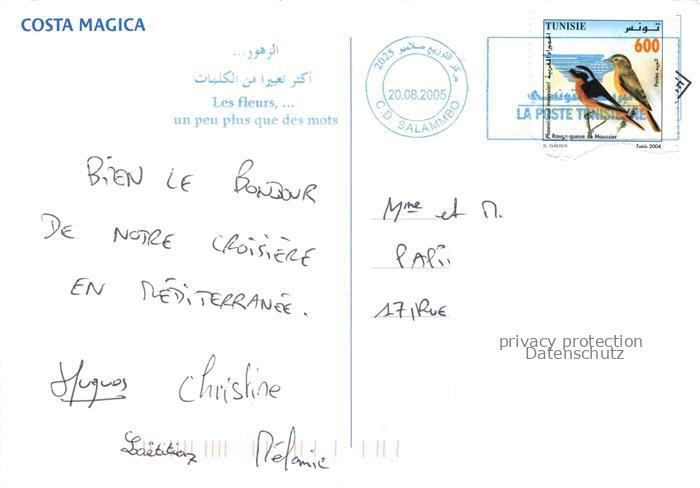 COSTA MAGICA
الزهور...
أكثر تعبيرا من الكلمات
Les fleurs, ...
un peu plus que des mots
BIEN LE BONJOUR
DE NOTRE CROISIÈRE
EN MÉDITERRANÉE.
Hugues Christine
Laëtitia Mélanie
مركز التوزيع صلامبو 2025
20.08.2005
C.D. SALAMMBO
TUNISIE تونس
600
البريد التونسي
LA POSTE TUNISIENNE
Rouge-queue de Moussier
S. GADER Tunis 2004
Mme et M.
PAPÏ
17, RUE
privacy protection
Datenschutz